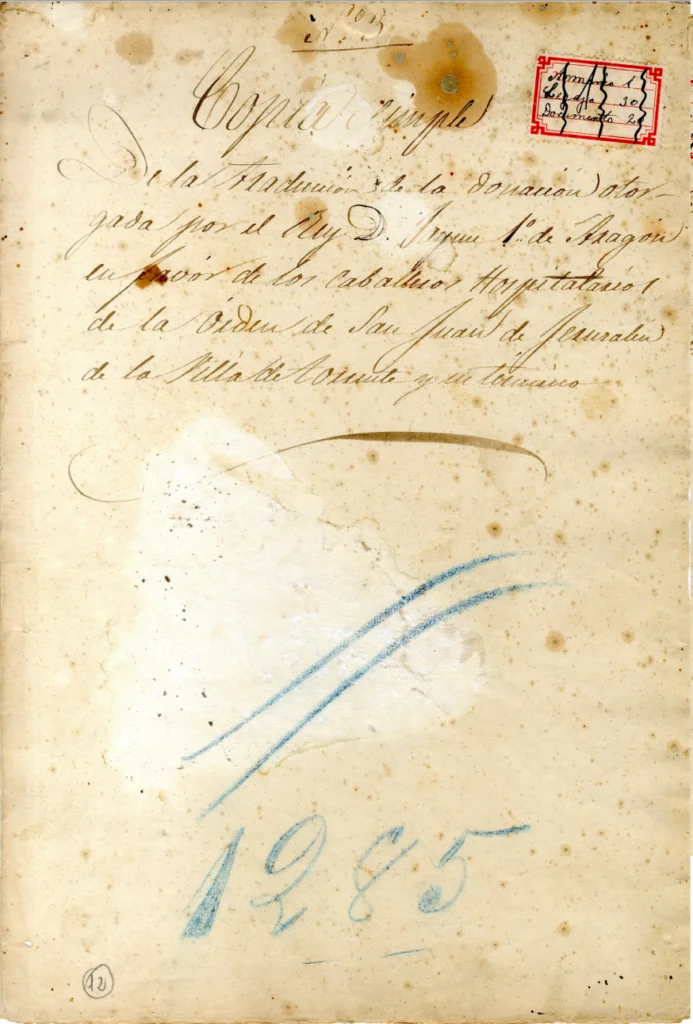 Nº 3
Armario 1
Legajo 30
Documento 2
Copia simple
De la traducción de la donación otor-
gada por el Rey D. Jayme 1º de Aragón
en favor de los Caballeros Hospitalarios
de la Orden de San Juan de Jerusalen
de la Villa de Torrente y su término
1285
12